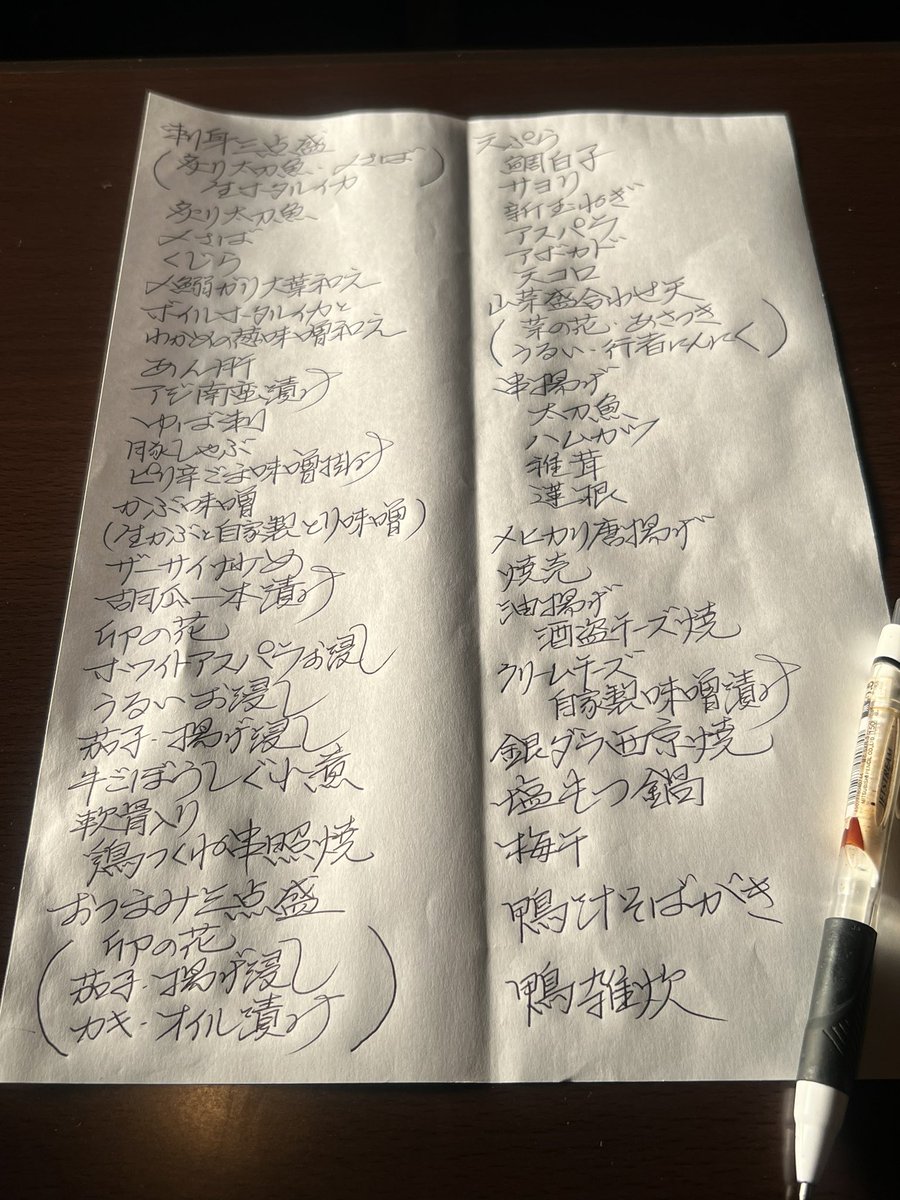 刺身三点盛
(炙り太刀魚・〆さば
生ホタルイカ)
炙り太刀魚
〆さば
くじら
〆鰯がり大葉和え
ボイルホタルイカと
わかめの 味噌和え
あん肝
アジ南蛮漬け
ゆば刺
豚しゃぶ
ピリ辛ごま味噌掛け
かぶ味噌
(生かぶと自家製とり味噌)
ザーサイ
胡瓜一本漬け
卯の花
ホワイトアスパラお浸し
うるいお浸し
茄子・揚げ浸し
牛ごぼうしぐれ煮
軟骨入り
鶏つくね串照焼
おつまみ三点盛
(卯の花
茄子・揚げ浸し
カキ・オイル漬け)
天ぷら
鯛白子
サヨリ
新玉ねぎ
アスパラ
アボカド
天コロ
山菜盛合わせ天
(菜の花・あさつき
うるい・行者にんにく)
串揚げ
太刀魚
ハムカツ
椎茸
蓮根
メヒカリ唐揚げ
焼売
油揚げ
酒盗チーズ焼
クリームチーズ
自家製味噌漬け
銀ダラ西京焼
塩もつ鍋
梅干
鴨汁そばがき
鴨雑炊
JETSTREAM